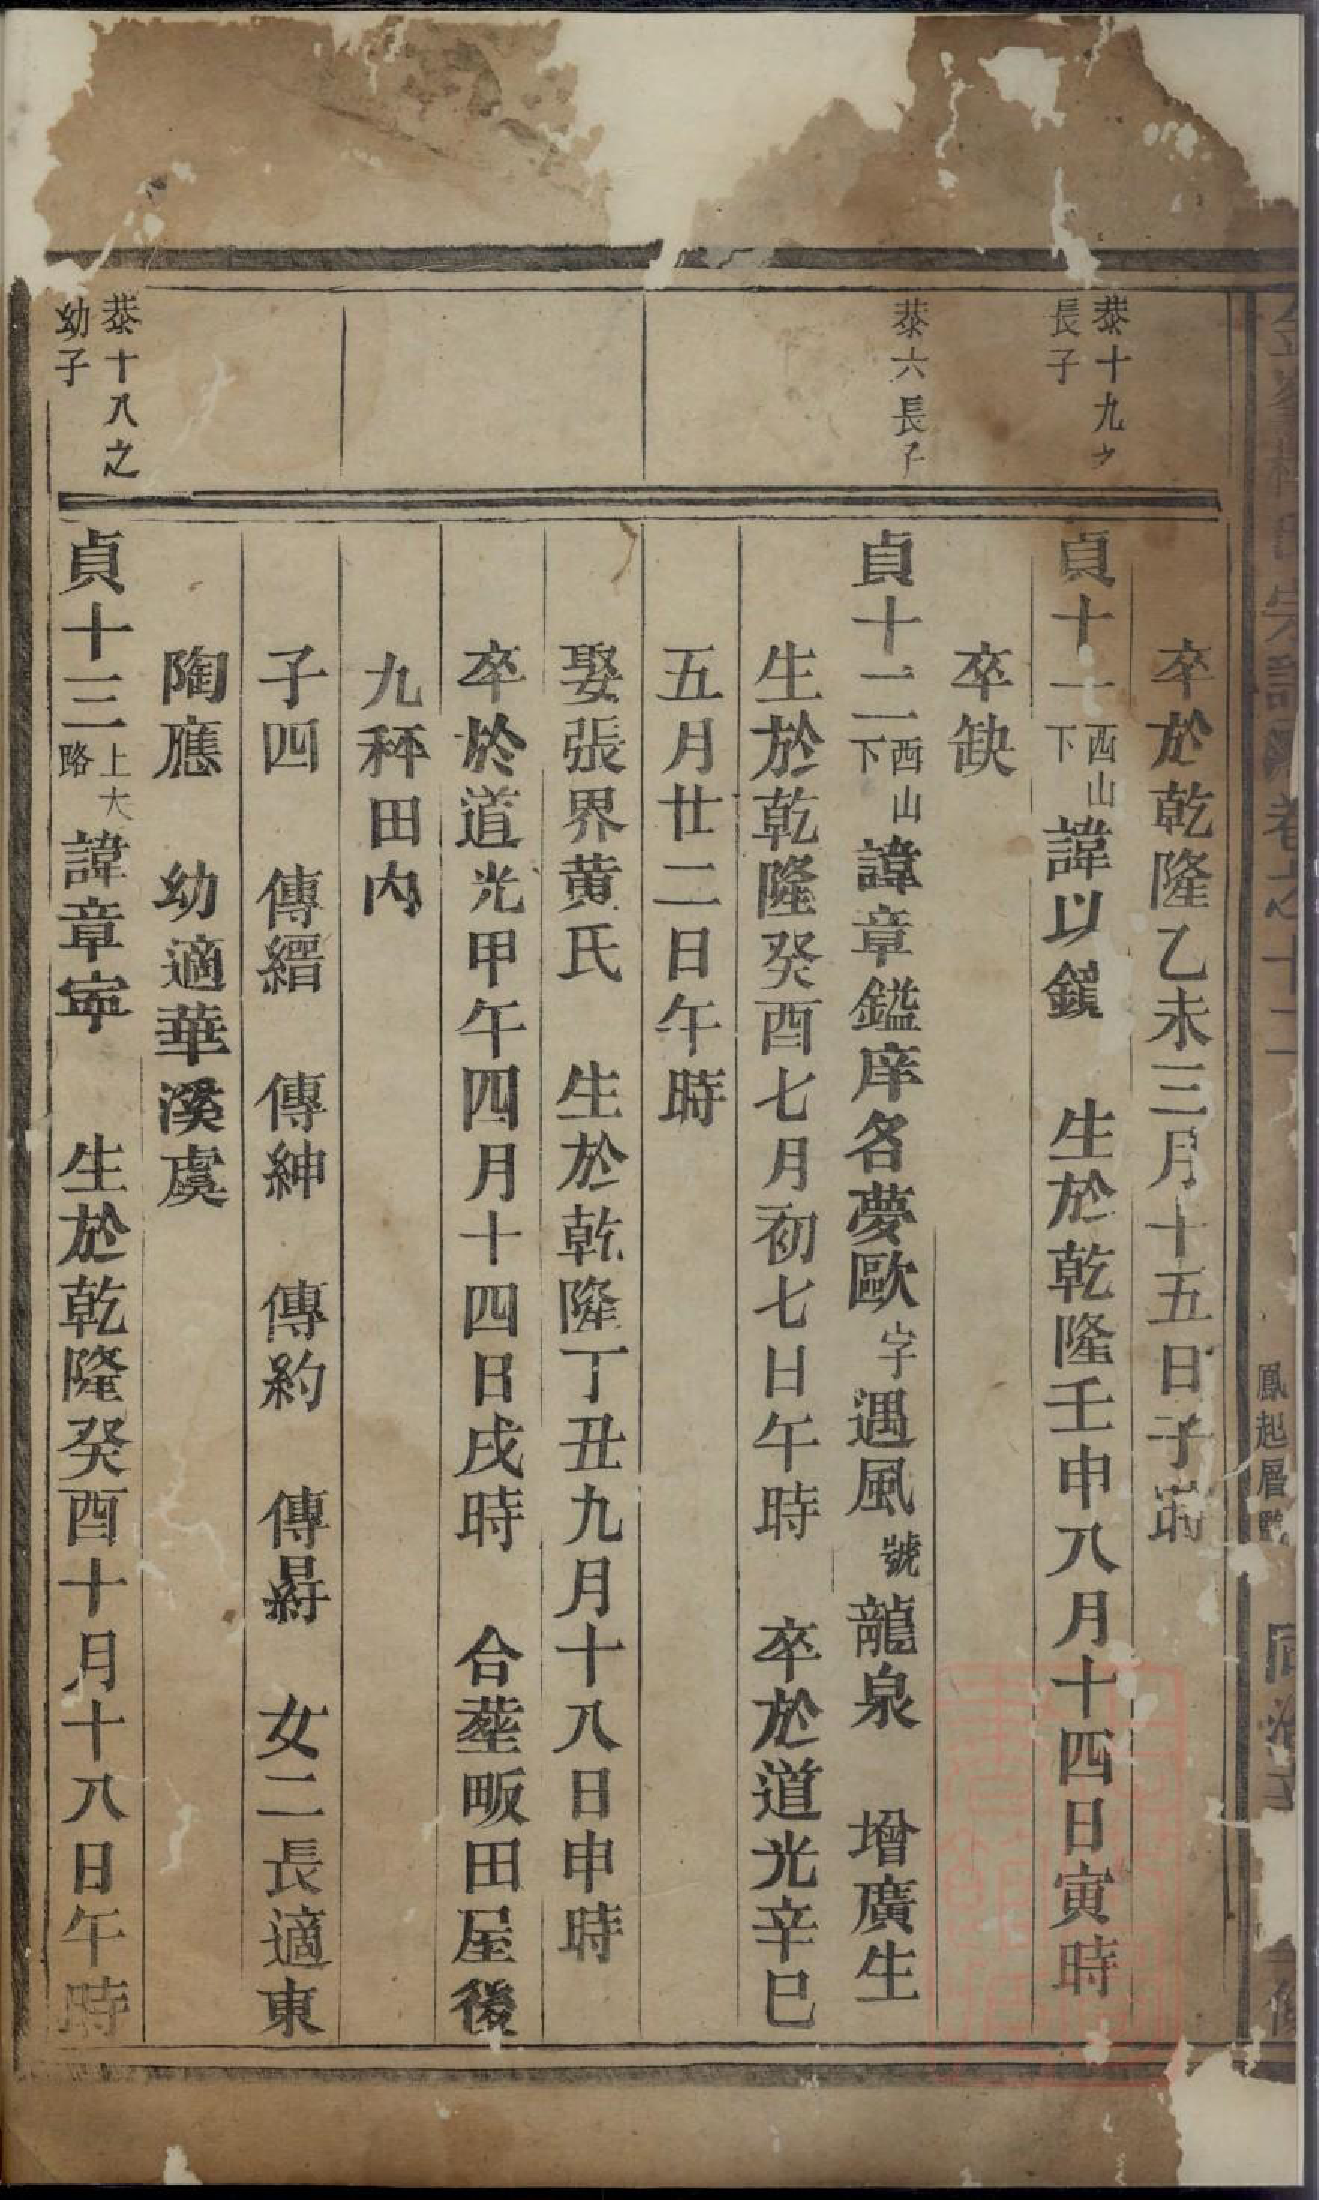 宗譜
卷之十二
鳳起層
同治
卒於乾隆乙未三月十五日子時
㳟十九之
長子
貞十一西山下諱以鎖　生於乾隆壬申八月十四日寅時
卒缺
㳟六長子
貞十二西山下諱章鎰庠名夢歐字遇風號龍泉　增廣生
生於乾隆癸酉七月初七日午時　卒於道光辛巳
五月廿二日午時
娶張界黄氏　生於乾隆丁丑九月十八日申時
卒於道光甲午四月十四日戌時　合塟畈田屋後
九秤田内
子四　傳縉　傳紳　傳約　傳　女二長適東
陶應　幼適華溪虞
㳟十八之
幼子
貞十三上大路諱章寧　生於乾隆癸酉十月十八日午時